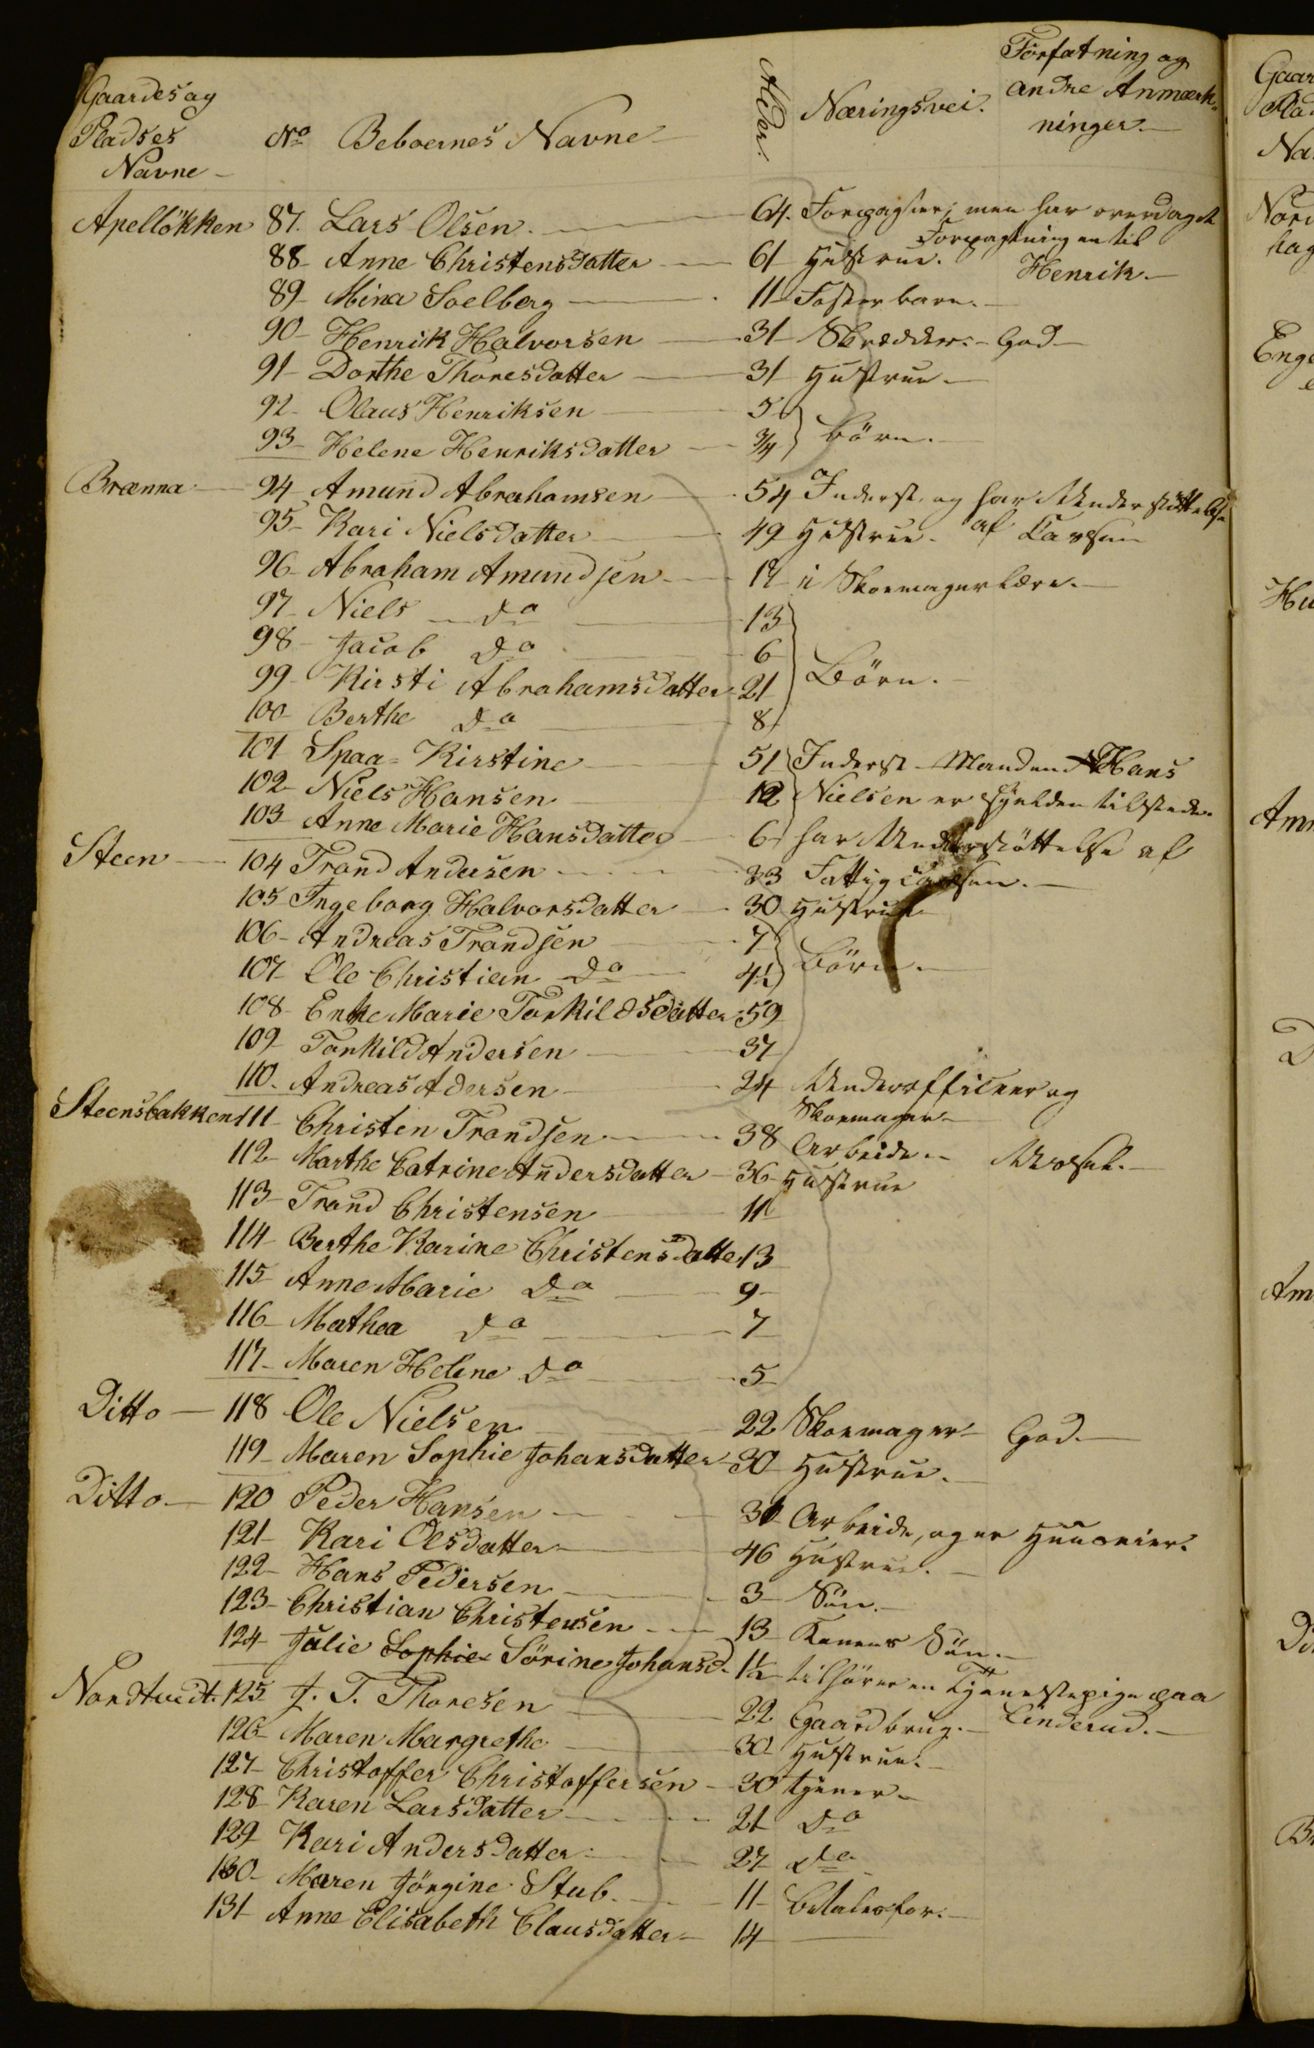 Gaardes og Pladses Navne - No Beboernes Navne - Alder. Næringsvei. Forfatning og andre Anmærk-
ninger. -
Apellökken 87. Lars Olsen. 64. Forpagter; men har overdraget
Forpagtningen til
88 - Anne Christensdatter 61 Hustrue. Henrik. -
89 - Mina Soelberg 11 Fosterbarn. -
90 - Henrik Halvorsen 31 Skrædder. - God -
91 - Dorthe Thoresdatter 31 Hustrue -
92 - Olaus Henriksen 5
93 - Helene Henriksdatter 3/4 Börn. -
Brænna - 94 Amund Abrahamsen 54 Inderst og har Understöttelse
95 - Kari Nielsdatter 49 Hustrue. af Cassen
96 - Abraham Amundsen 17 i Skoemagerlære. -
97 - Niels do 13
98 - Jacob do 6
99 - Kirsti Abrahamsdatter 21 Börn. -
100 - Berthe do 8
101 Spaa-Kirstine 51 Inderst - Manden Hans
102 - Niels Hansen 12 Nielsen er sjelden tilstede.
103 - Anne Marie Hansdatter 6 har Understöttelse af
Steen - 104 Trond Andersen 33 Fattigcassen. -
105 Ingeborg Halvorsdatter 30 Hustrue
106 - Andreas Trondsen 7
107 Ole Christian do 4 1/2 Börn. -
108 - Enke Marie Torkildsdatter 59
109 - Torkild Andersen 37
110. Andreas Adersen 24 Underofficeer og
Skoemager -
Steensbakken 111 Christen Trondsen 38 Arbeide. - Ussel. -
112 - Marthe Catrine Andersdatter 36 Hustrue
113 - Trond Christensen 11
114 - Berthe Karine Christensdatter 13
115 - Anne Marie do 9 -
116 - Mathea do 7
117 - Maren Helene do 5
Ditto - 118 Ole Nielsen 22 Skoemager - God. -
119 - Maren Sophie Johansdatter 30 Hustrue. -
Ditto - 120 Peder Hansen 31 Arbeide, og er Huuseier.
121 - Kari Olsdatter 46 Hustrue. -
122 - Hans Pedersen 3 Sön. -
123 - Christian Christensen 13 Konens Sön. -
124 Julie Sophie Sörine Johansd. 1 1/2 tilhörer en Tjenestepige paa
Linderud. -
Nordtvedt. 125 J. T. Thoresen 22 Gaardbrug. -
126 - Maren Margrethe 30 Hustrue. -
127 - Christoffer Christoffersen 30 tjener -
128 - Karen Larsdatter 21 do
129 - Kari Andersdatter 27 do
130 - Maren Jörgine Stub. 11 betales for. -
131 - Anne Elisabeth Clausdatter 14